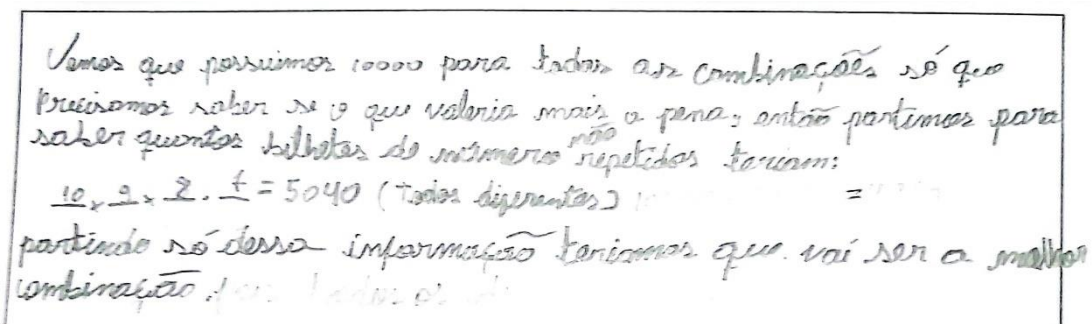 Vemos que possuimos 10000 para todas as combinações só que
Precisamos saber se o que valeria mais a pena, então partimos para
saber quantos bilhetes de número não repetidos teriam:
10 x 9 x 8 . 7 = 5040 (Todos diferentes) =
partindo só dessa informação teriamos que vai ser a melhor
combinação.